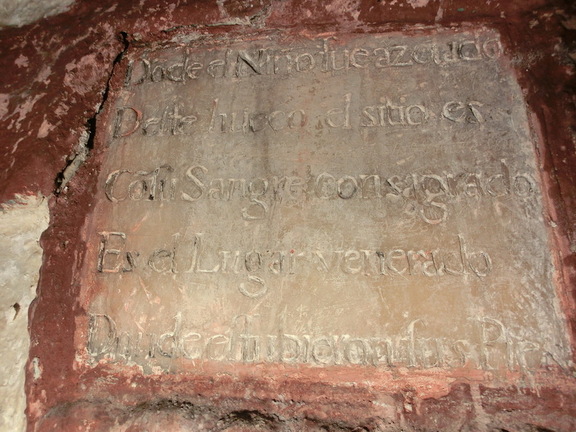 Donde el Niño fue azotado
Deste hueco el sitio es
Con su Sangre consagrado
Es el Lugar venerado
Donde estubieron sus Pies